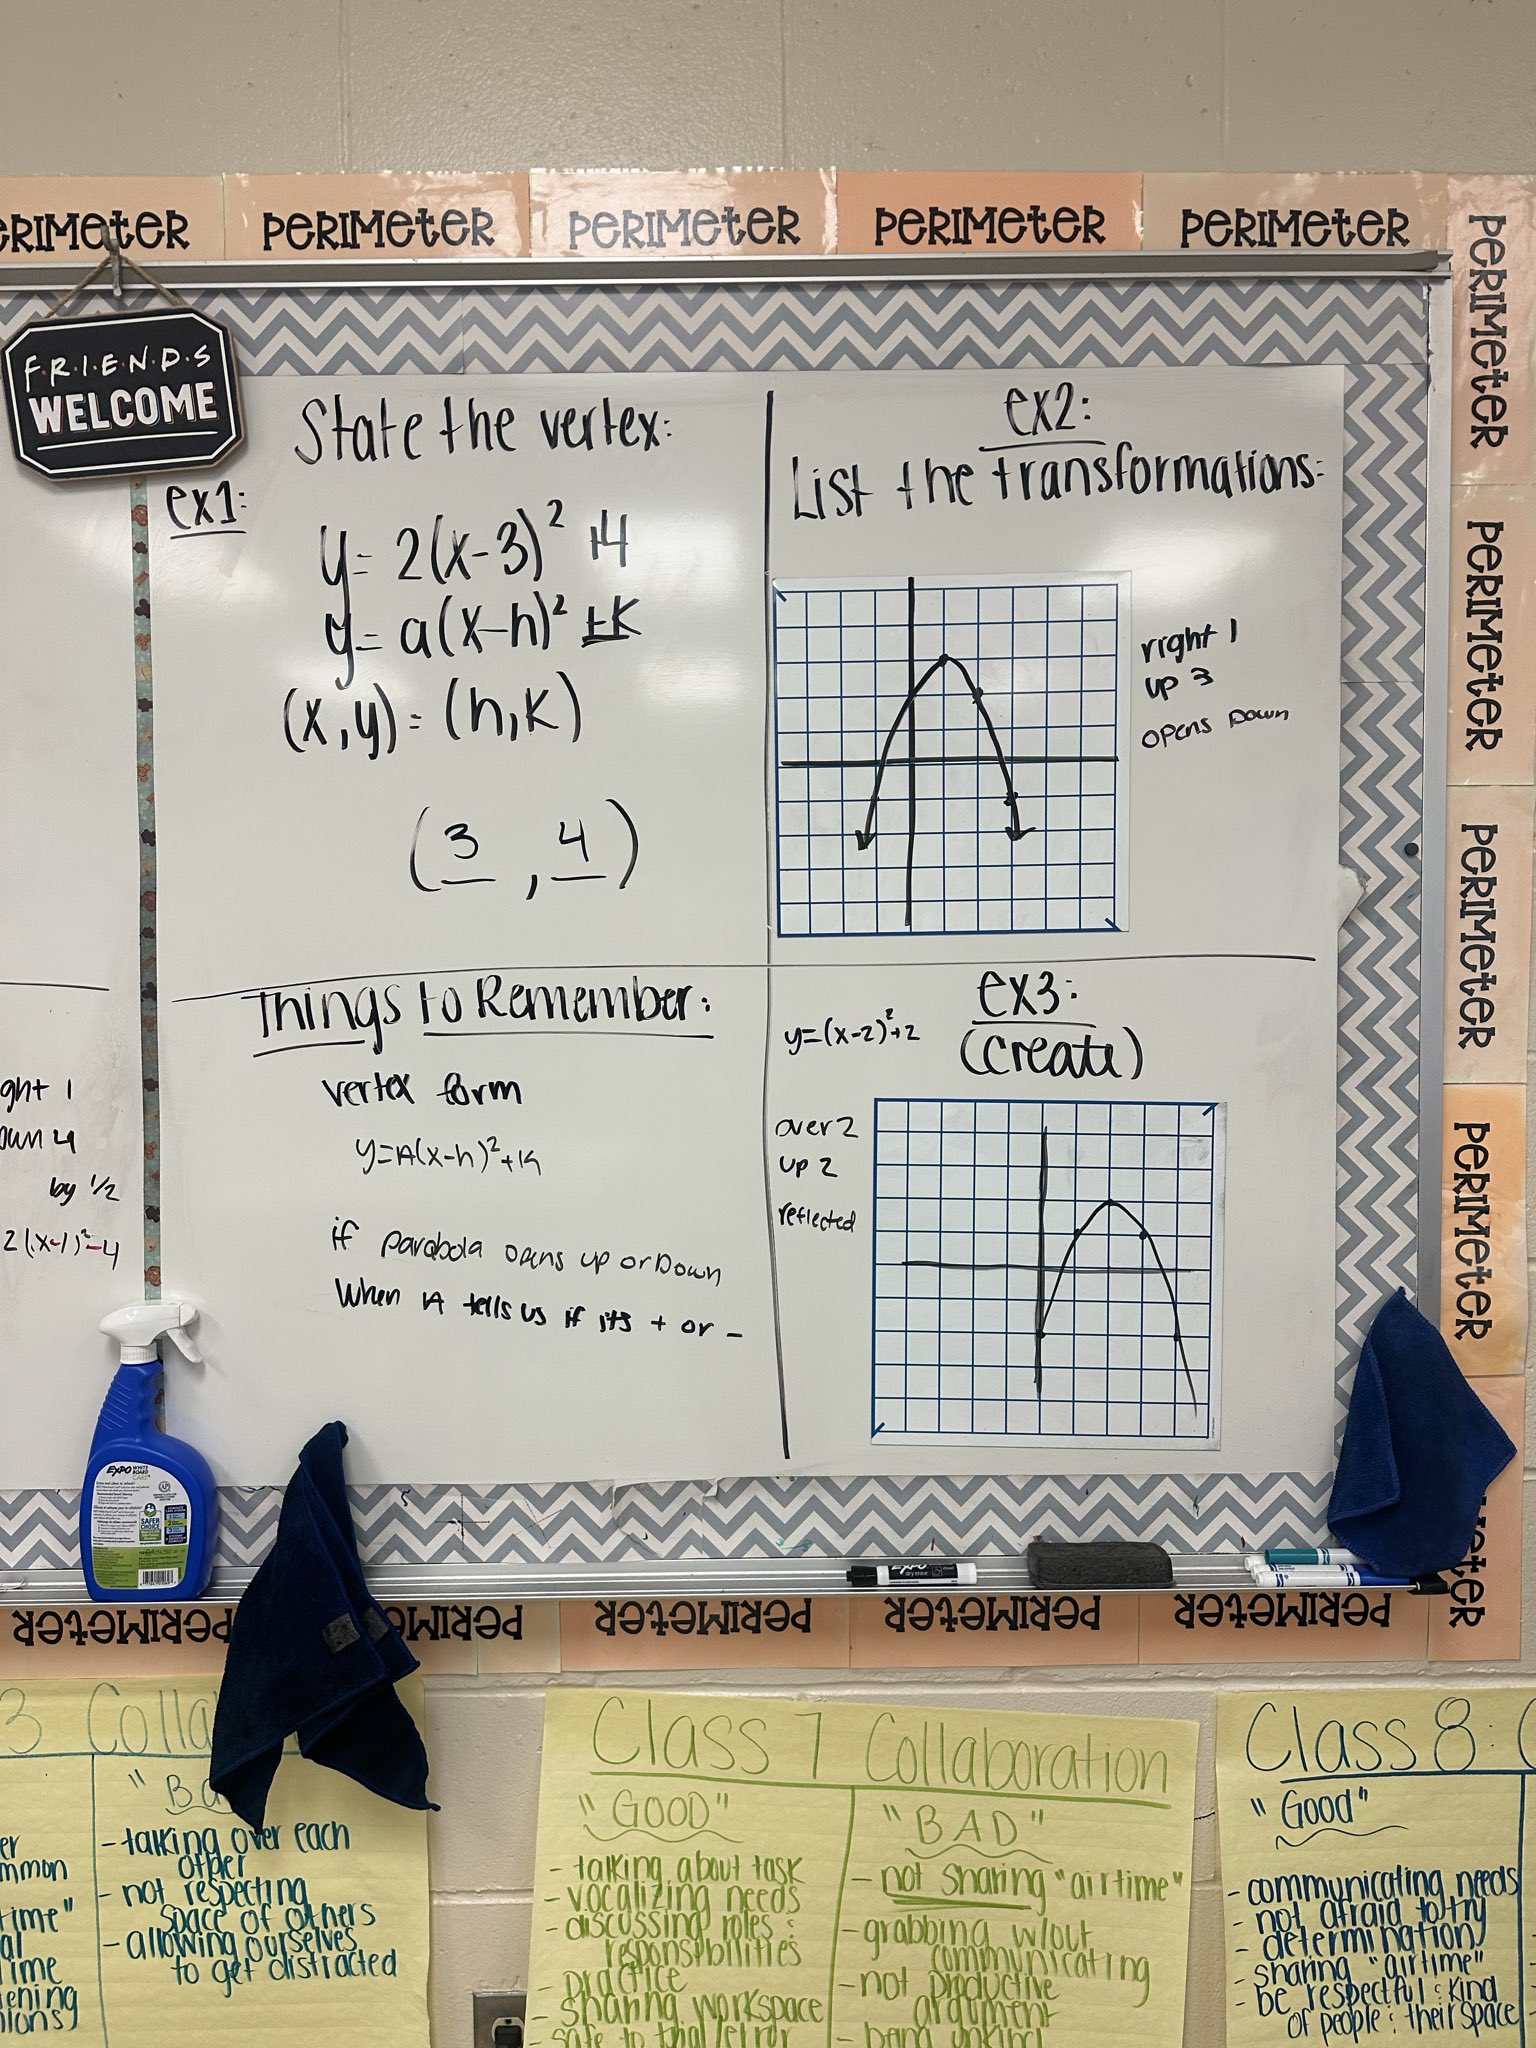 PERIMETER PERIMETER PERIMETER PERIMETER
PERIMETER
PERIMETER
PERIMETER
PERIMETER
F·R·I·E·N·D·S
WELCOME
State the vertex:
ex1:
y= 2(x-3)² +4
y= a(x-h)² +K
(x,y) = (h,K)
(3, 4)
ex2:
List the transformations:
right 1
up 3
opens Down
Things to Remember:
vertex form
y=A(x-h)²+K
if parabola opens up or Down
When A tells us if its + or -
ex3:
(create)
y=(x-2)²+2
over 2
up 2
reflected
ght 1
own 4
by 1/2
2(x-1)²-4
EXPO WHITE BOARD CARE
SAFER CHOICE
EXPO
dry erase
PERIMETER PERIMETER PERIMETER
3 Colla
"Ba
- talking over each
other
- not respecting
space of others
- allowing ourselves
to get distracted
er
mmon
time"
al
time
tening
nions)
Class 7 Collaboration
"GOOD"
- talking about task
- vocalizing needs
- discussing roles &
responsibilities
- practice
- sharing workspace
- safe to trial/error
"BAD"
- not sharing "airtime"
- grabbing w/out
communicating
- not productive
argument
- being unkind
Class 8: C
"Good"
- communicating needs
- not afraid to try
- determination
- sharing "airtime"
- be respectful & kind
of people & their space